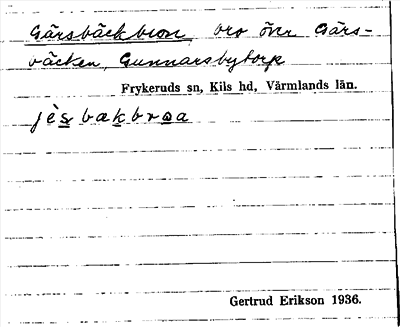 Gärsbäckbron, bro över Gärs-
bäcken, Gunnarsbytorp
Frykeruds sn, Kils hd, Värmlands län.
jè̀s bækbroa
Gertrud Erikson 1936.